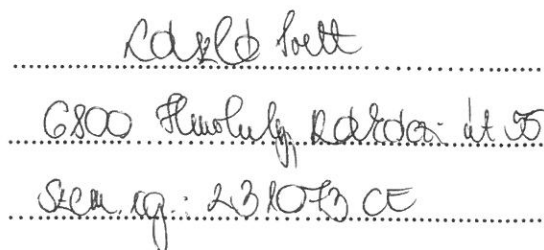 László Zsolt
6800 Hmvhely, Rárósi út 55
Szem. ig.: 231073 CE